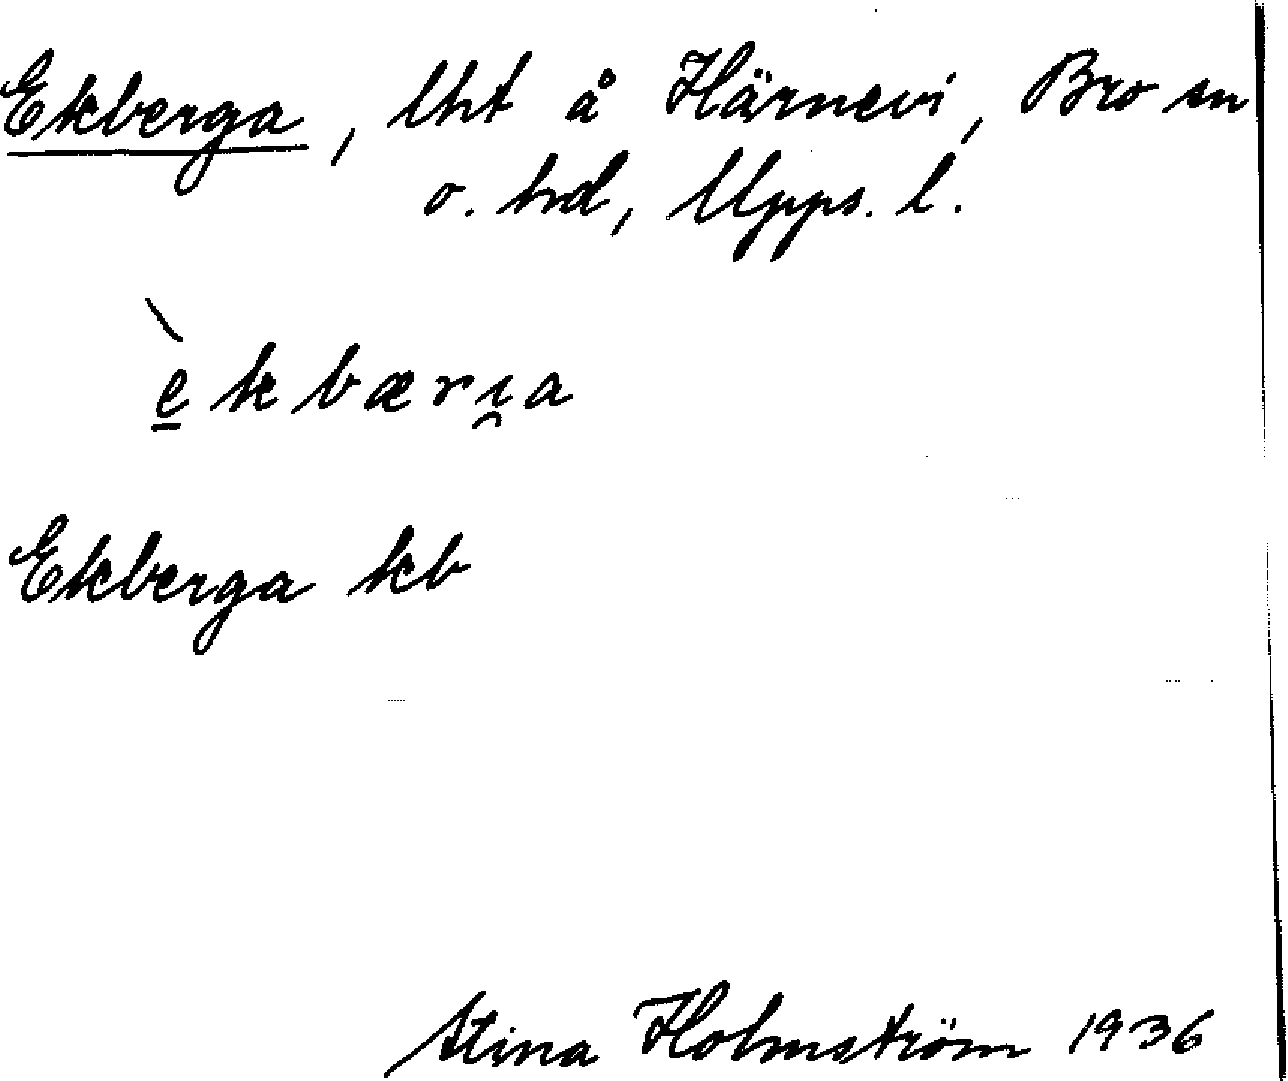 Ekberga, lht å Härnevi, Bro sn
o. hd, Upps. l.
è̱kbærı̯a
Ekberga kb
Stina Holmström 1936